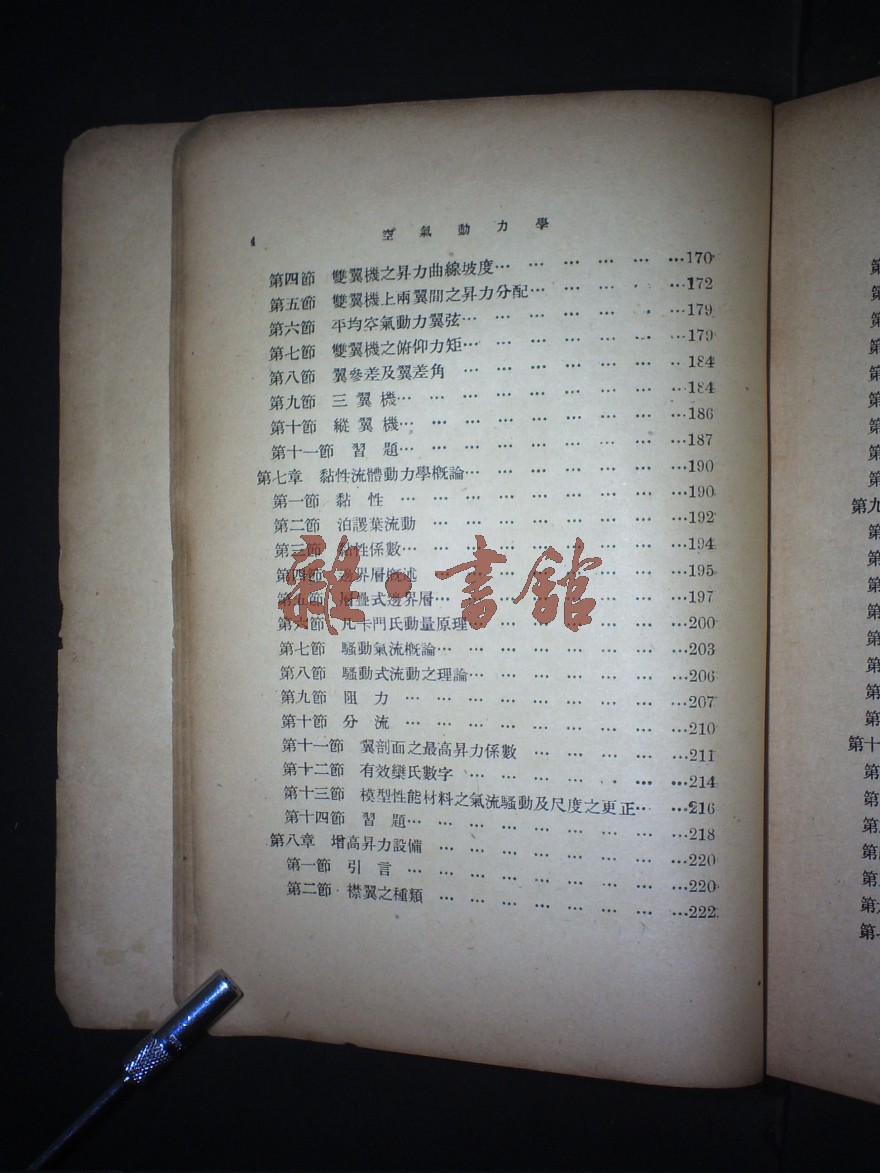 4 空氣動力學
第四節 雙翼機之昇力曲線坡度… … … … … …170
第五節 雙翼機上兩翼間之昇力分配… … … … …172
第六節 平均空氣動力翼弦… … … … … … …179
第七節 雙翼機之俯仰力矩… … … … … … …179
第八節 翼參差及翼差角 … … … … … … …184
第九節 三翼機… … … … … … … … …184
第十節 縱翼機… … … … … … … … …186
第十一節 習題… … … … … … … … …187
第七章 黏性流體動力學概論… … … … … … …190
第一節 黏性 … … … … … … … … …190
第二節 泊謖葉流動 … … … … … … … …192
第三節 黏性係數… … … … … … … … …194
第四節 邊界層概述 … … … … … … … …195
第五節 層疊式邊界層… … … … … … … …197
第六節 凡卡門氏動量原理… … … … … … …200
第七節 騷動氣流概論… … … … … … … …203
第八節 騷動式流動之理論… … … … … … …206
第九節 阻力 … … … … … … … … …207
第十節 分流 … … … … … … … … …210
第十一節 翼剖面之最高昇力係數 … … … … …211
第十二節 有效欒氏數字 … … … … … … …214
第十三節 模型性能材料之氣流騷動及尺度之更正… …216
第十四節 習題… … … … … … … … …218
第八章 增高昇力設備 … … … … … … … …220
第一節 引言 … … … … … … … … …220
第二節 襟翼之種類 … … … … … … … …222
雜·書館
第九
第十